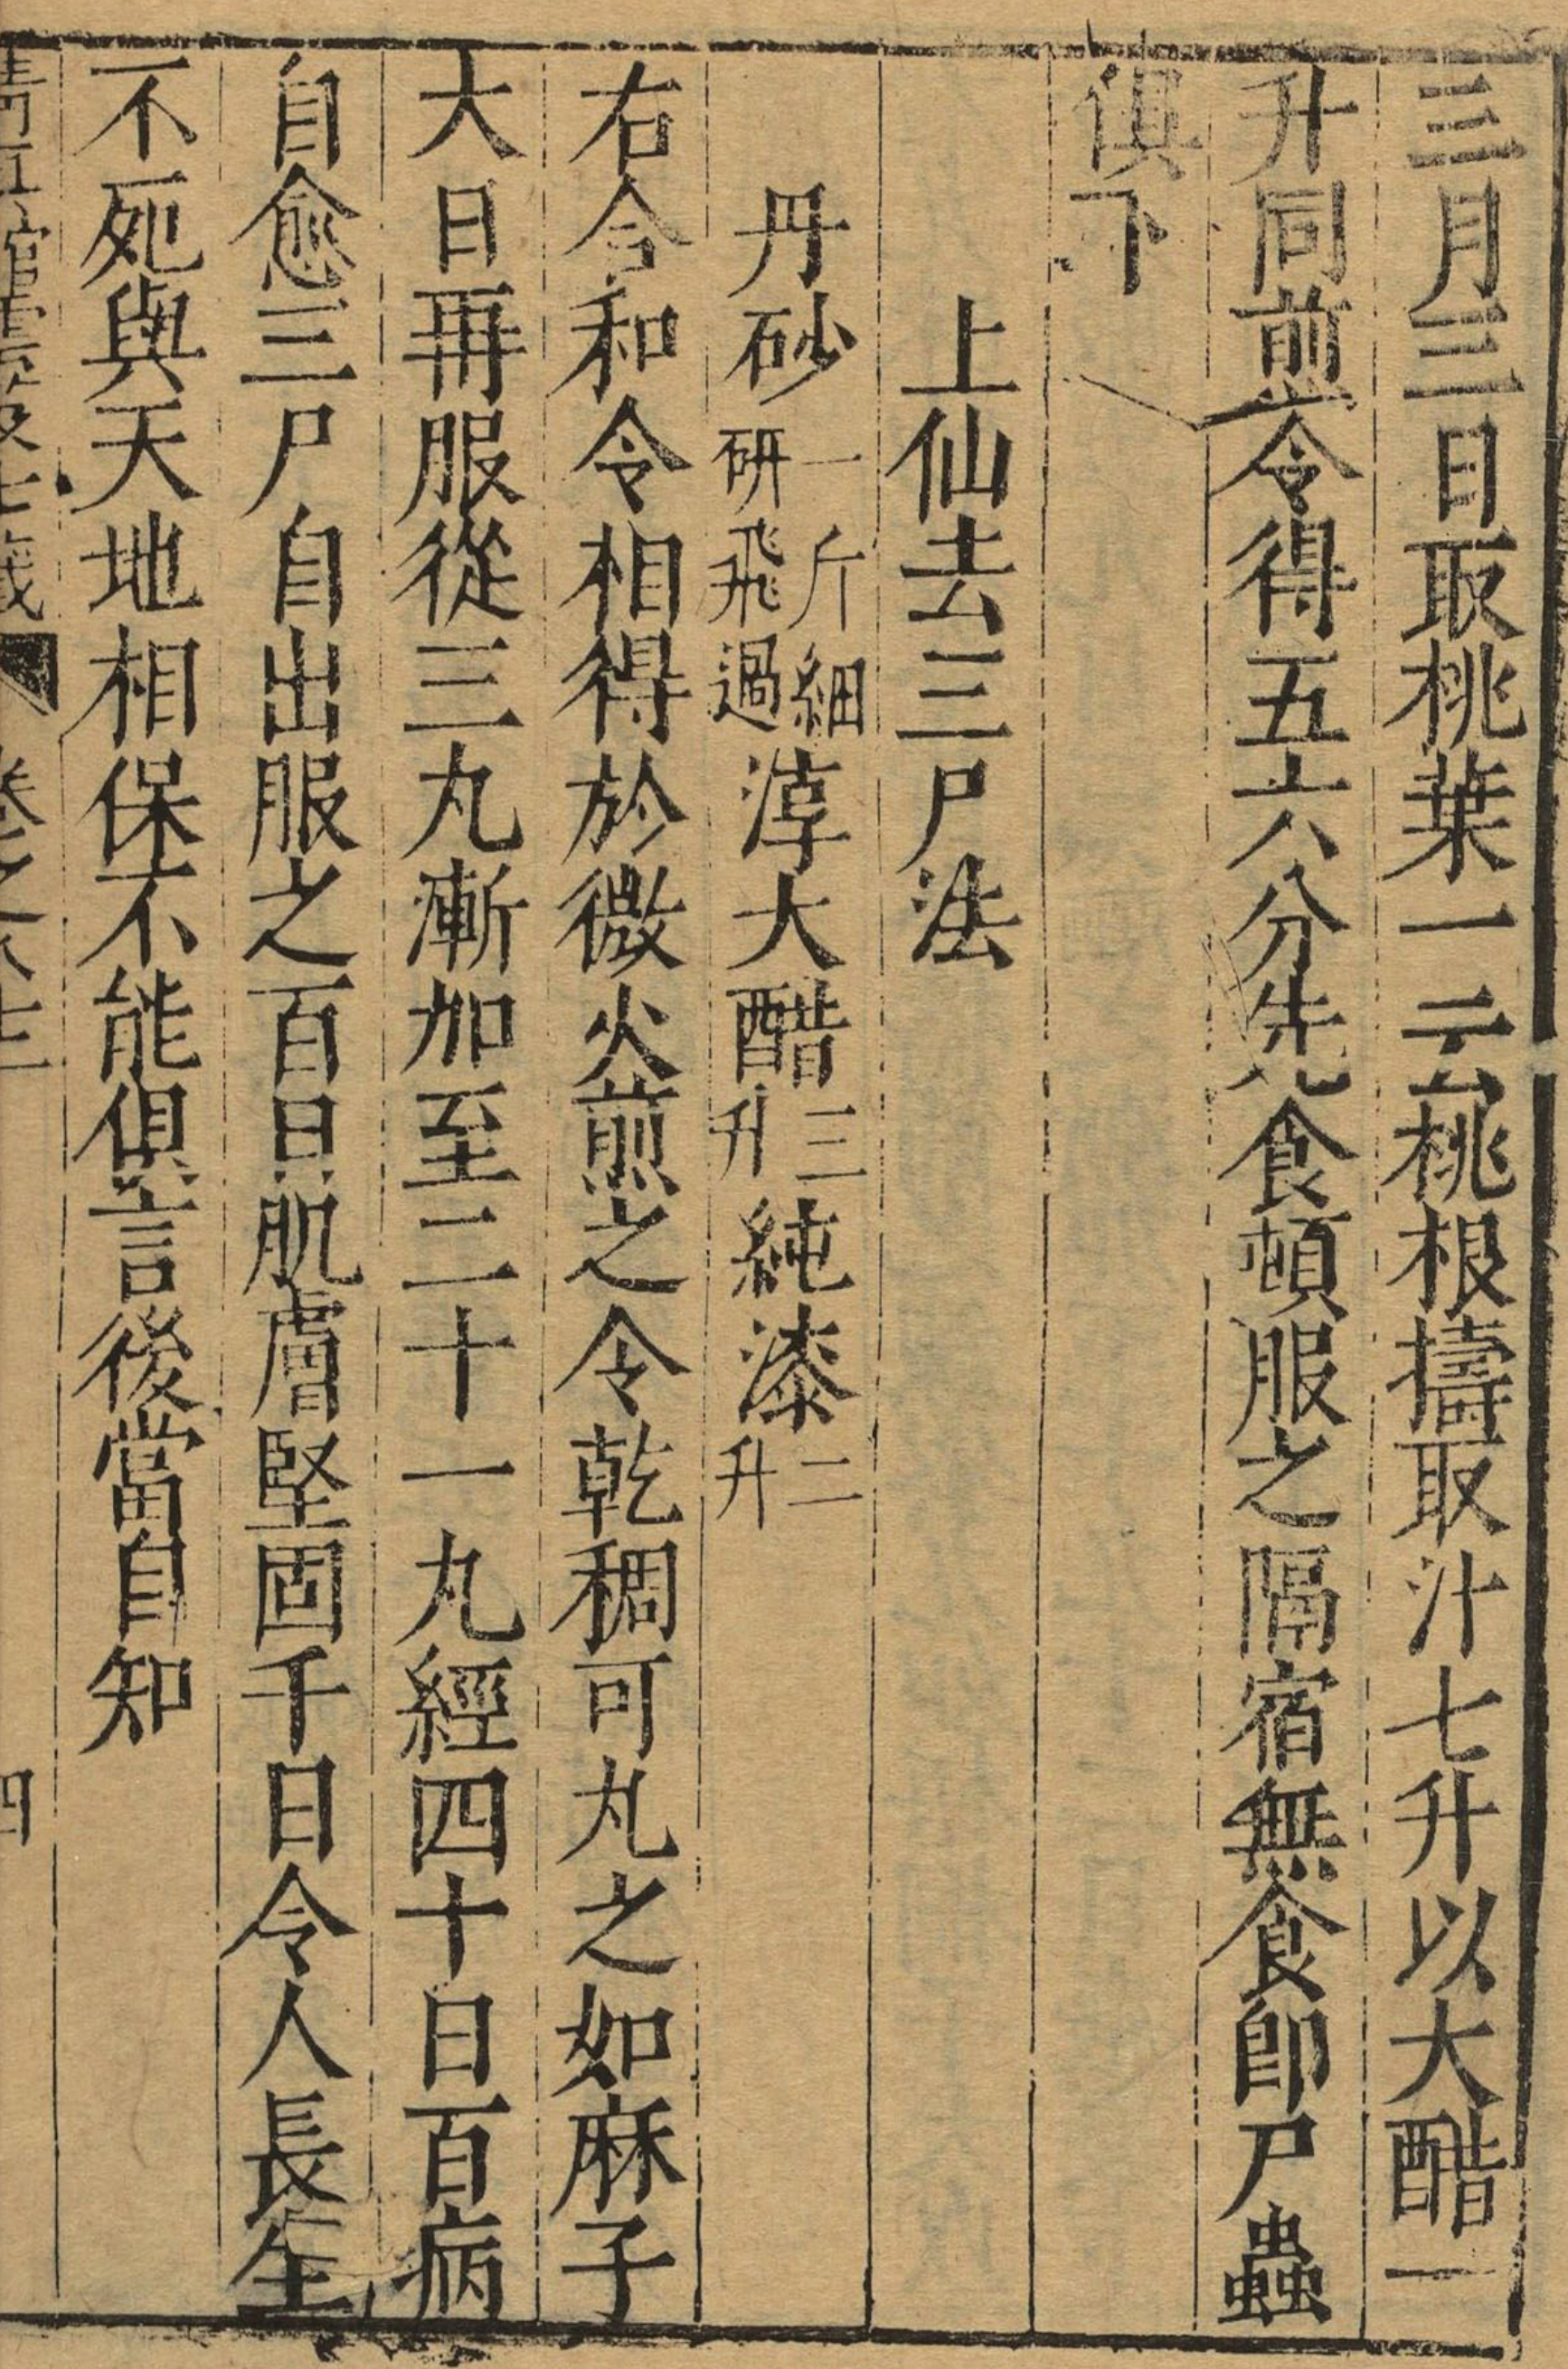 三月三日取桃葉一云桃根擣取汁七升以大醋一
升同煎令得五六分先食頓服之隔宿無食卽尸蟲
俱下
上仙去三尸法
丹砂一斤細研飛過淳大醋三升純漆二升
右合和令相得於微火煎之令乾稠可丸之如麻子
大日再服從三丸漸加至二十一丸經四十日百病
自愈三尸自出服之百日肌膚堅固千日令人長生
不死與天地相保不能俱言後當自知
清真館雲笈七籤 卷之八十三 四